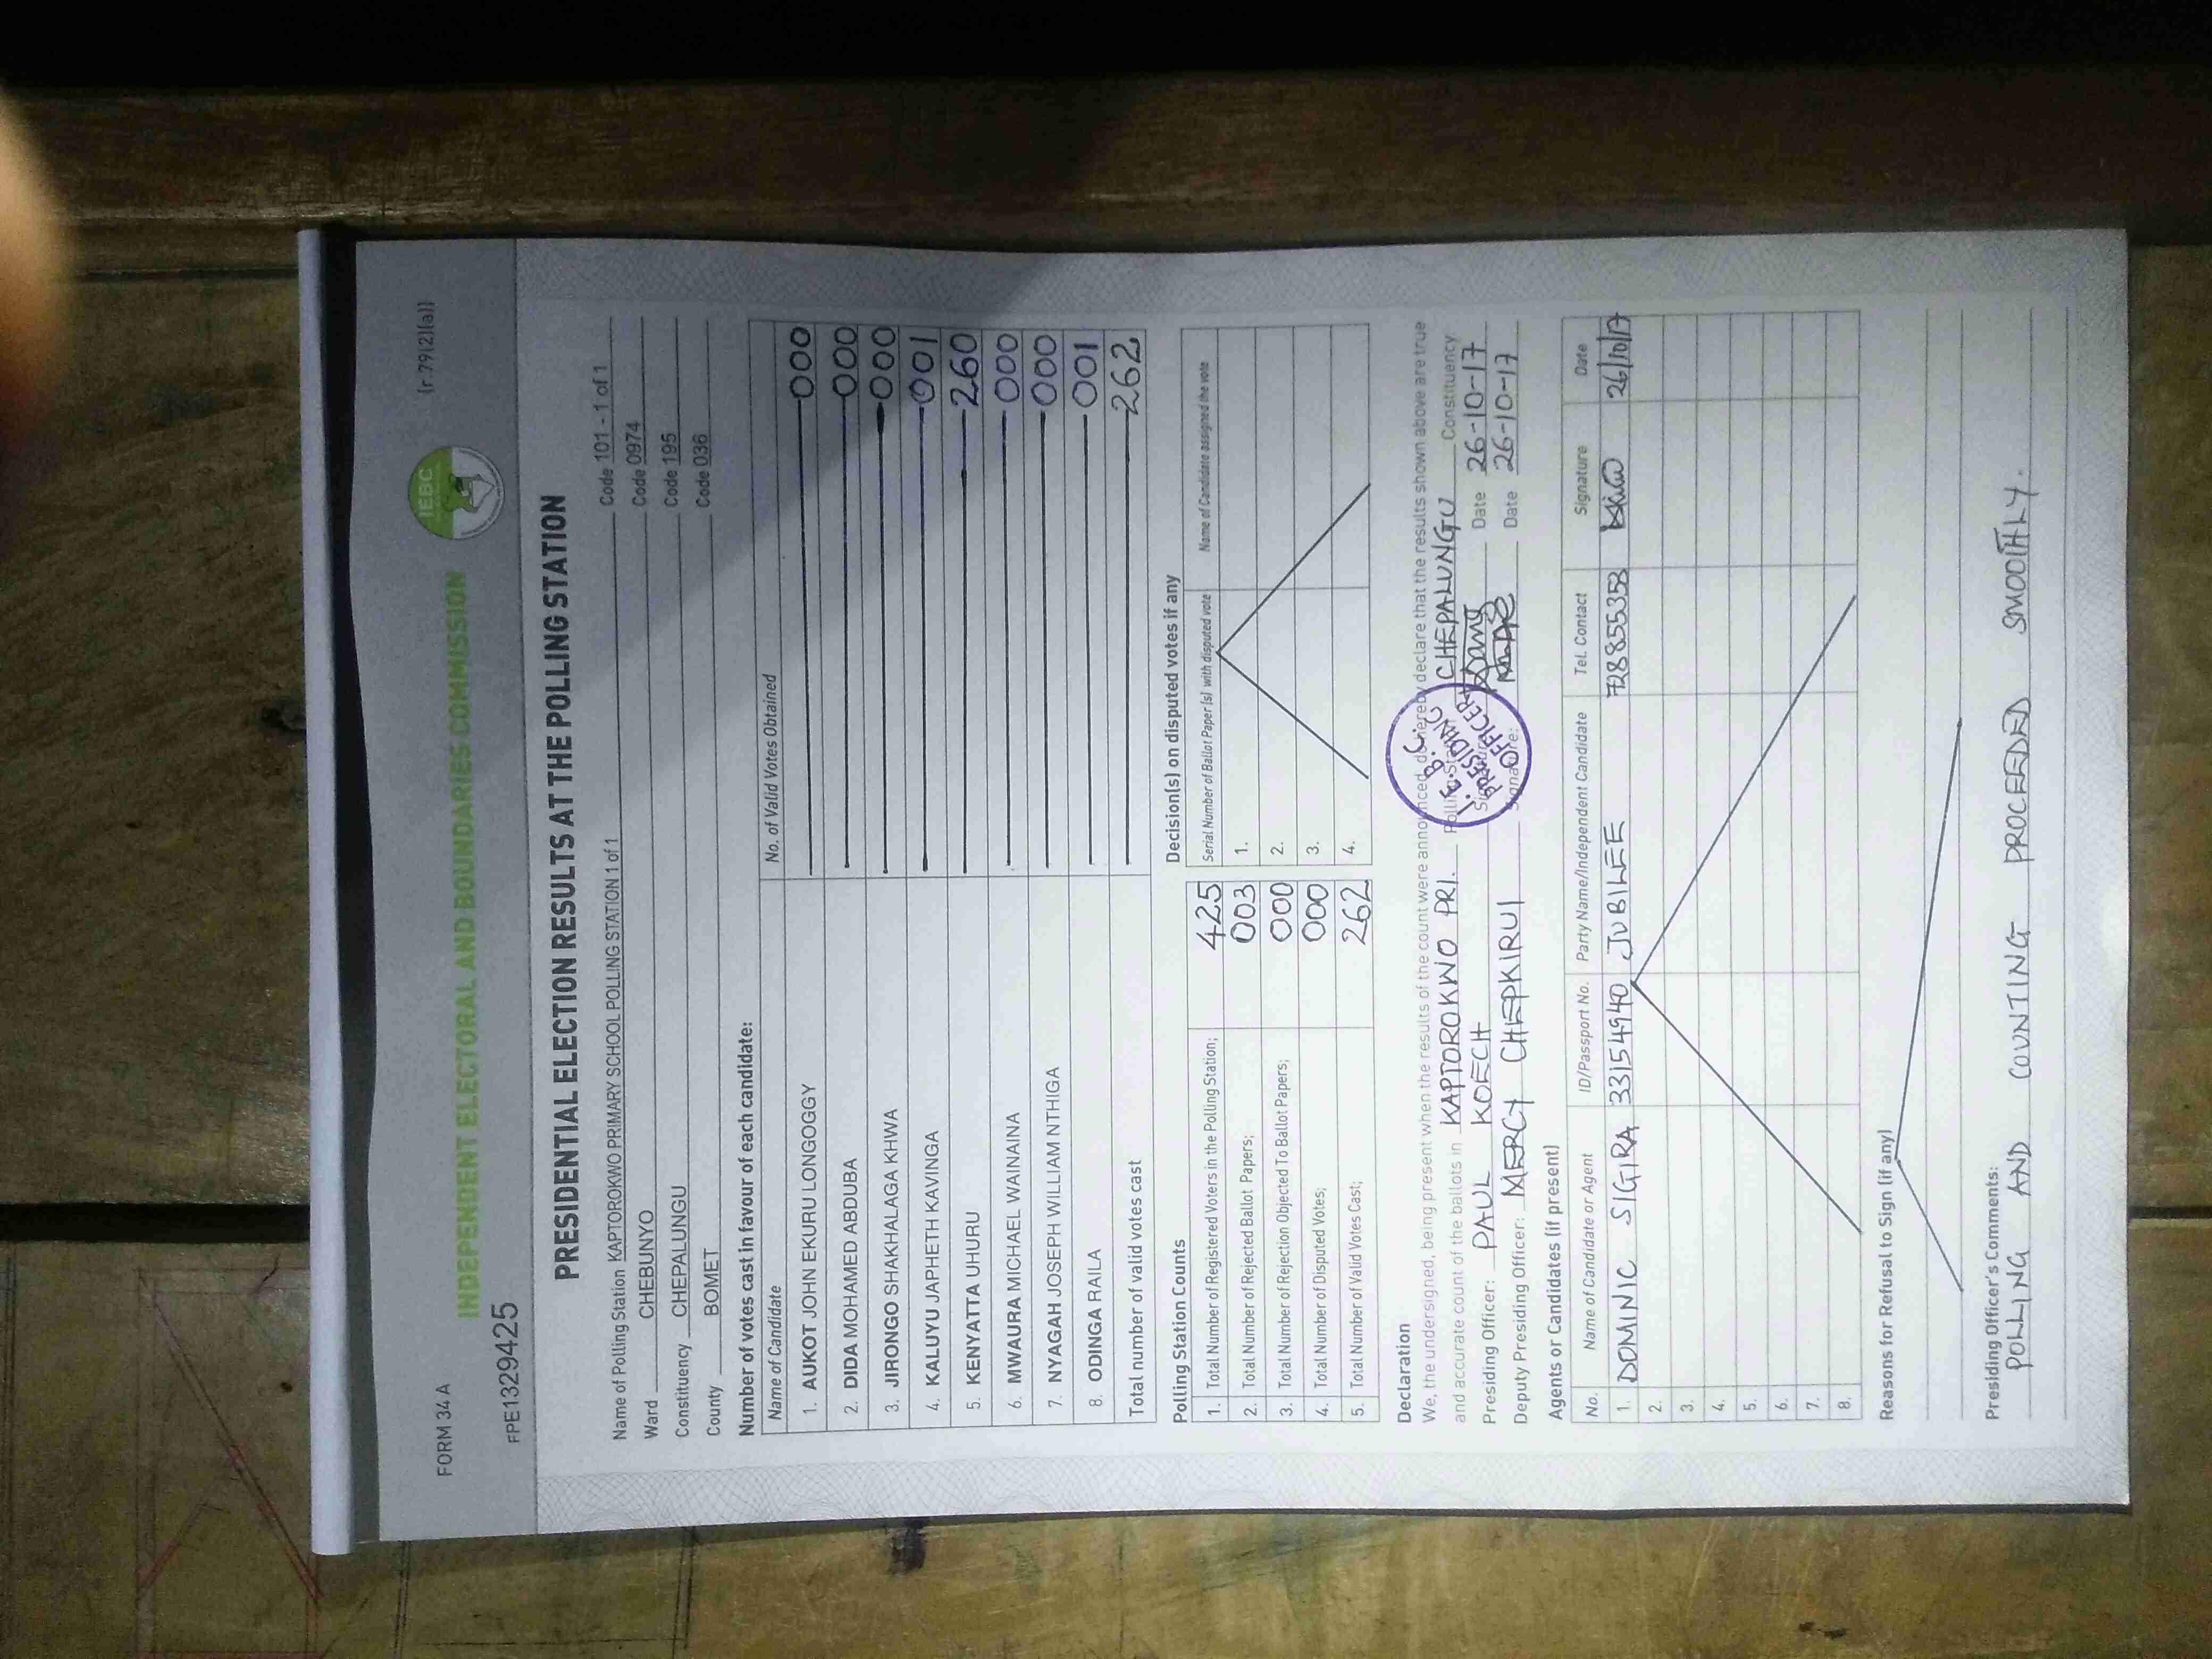 FORM 34 A
(r.79(2)(a))
INDEPENDENT ELECTORAL AND BOUNDARIES COMMISSION
IEBC
FPE1329425
PRESIDENTIAL ELECTION RESULTS AT THE POLLING STATION
Name of Polling Station KAPTOROKWO PRIMARY SCHOOL POLLING STATION 1 of 1 Code 101 - 1 of 1
Ward CHEBUNYO Code 0974
Constituency CHEPALUNGU Code 195
County BOMET Code 036
Number of votes cast in favour of each candidate:
Name of Candidate No. of Valid Votes Obtained
1. AUKOT JOHN EKURU LONGOGGY 000
2. DIDA MOHAMED ABDUBA 000
3. JIRONGO SHAKHALAGA KHWA 000
4. KALUYU JAPHETH KAVINGA 001
5. KENYATTA UHURU 260
6. MWAURA MICHAEL WAINAINA 000
7. NYAGAH JOSEPH WILLIAM NTHIGA 000
8. ODINGA RAILA 001
Total number of valid votes cast 262
Polling Station Counts
1. Total Number of Registered Voters in the Polling Station; 425
2. Total Number of Rejected Ballot Papers; 003
3. Total Number of Rejection Objected To Ballot Papers; 000
4. Total Number of Disputed Votes; 000
5. Total Number of Valid Votes Cast; 262
Decision(s) on disputed votes if any
Serial Number of Ballot Paper (s) with disputed vote Name of Candidate assigned the vote
1.
2.
3.
4.
Declaration
We, the undersigned, being present when the results of the count were announced, do hereby declare that the results shown above are true
and accurate count of the ballots in KAPTOROKWO PRI. Polling Station CHEPALUNGU Constituency
Presiding Officer: PAUL KOECH Signature: Date 26-10-17
Deputy Presiding Officer: MERCY CHEPKIRUI Signature: Date 26-10-17
I.E.B.C
PRESIDING
OFFICER
Agents or Candidates (if present)
No. Name of Candidate or Agent ID/Passport No. Party Name/Independent Candidate Tel. Contact Signature Date
1. DOMINIC SIGIRA 33154940 JUBILEE 26/10/17
2.
3.
4.
5.
6.
7.
8.
Reasons for Refusal to Sign (if any)
Presiding Officer's Comments:
POLLING AND COUNTING PROCEEDED SMOOTHLY.